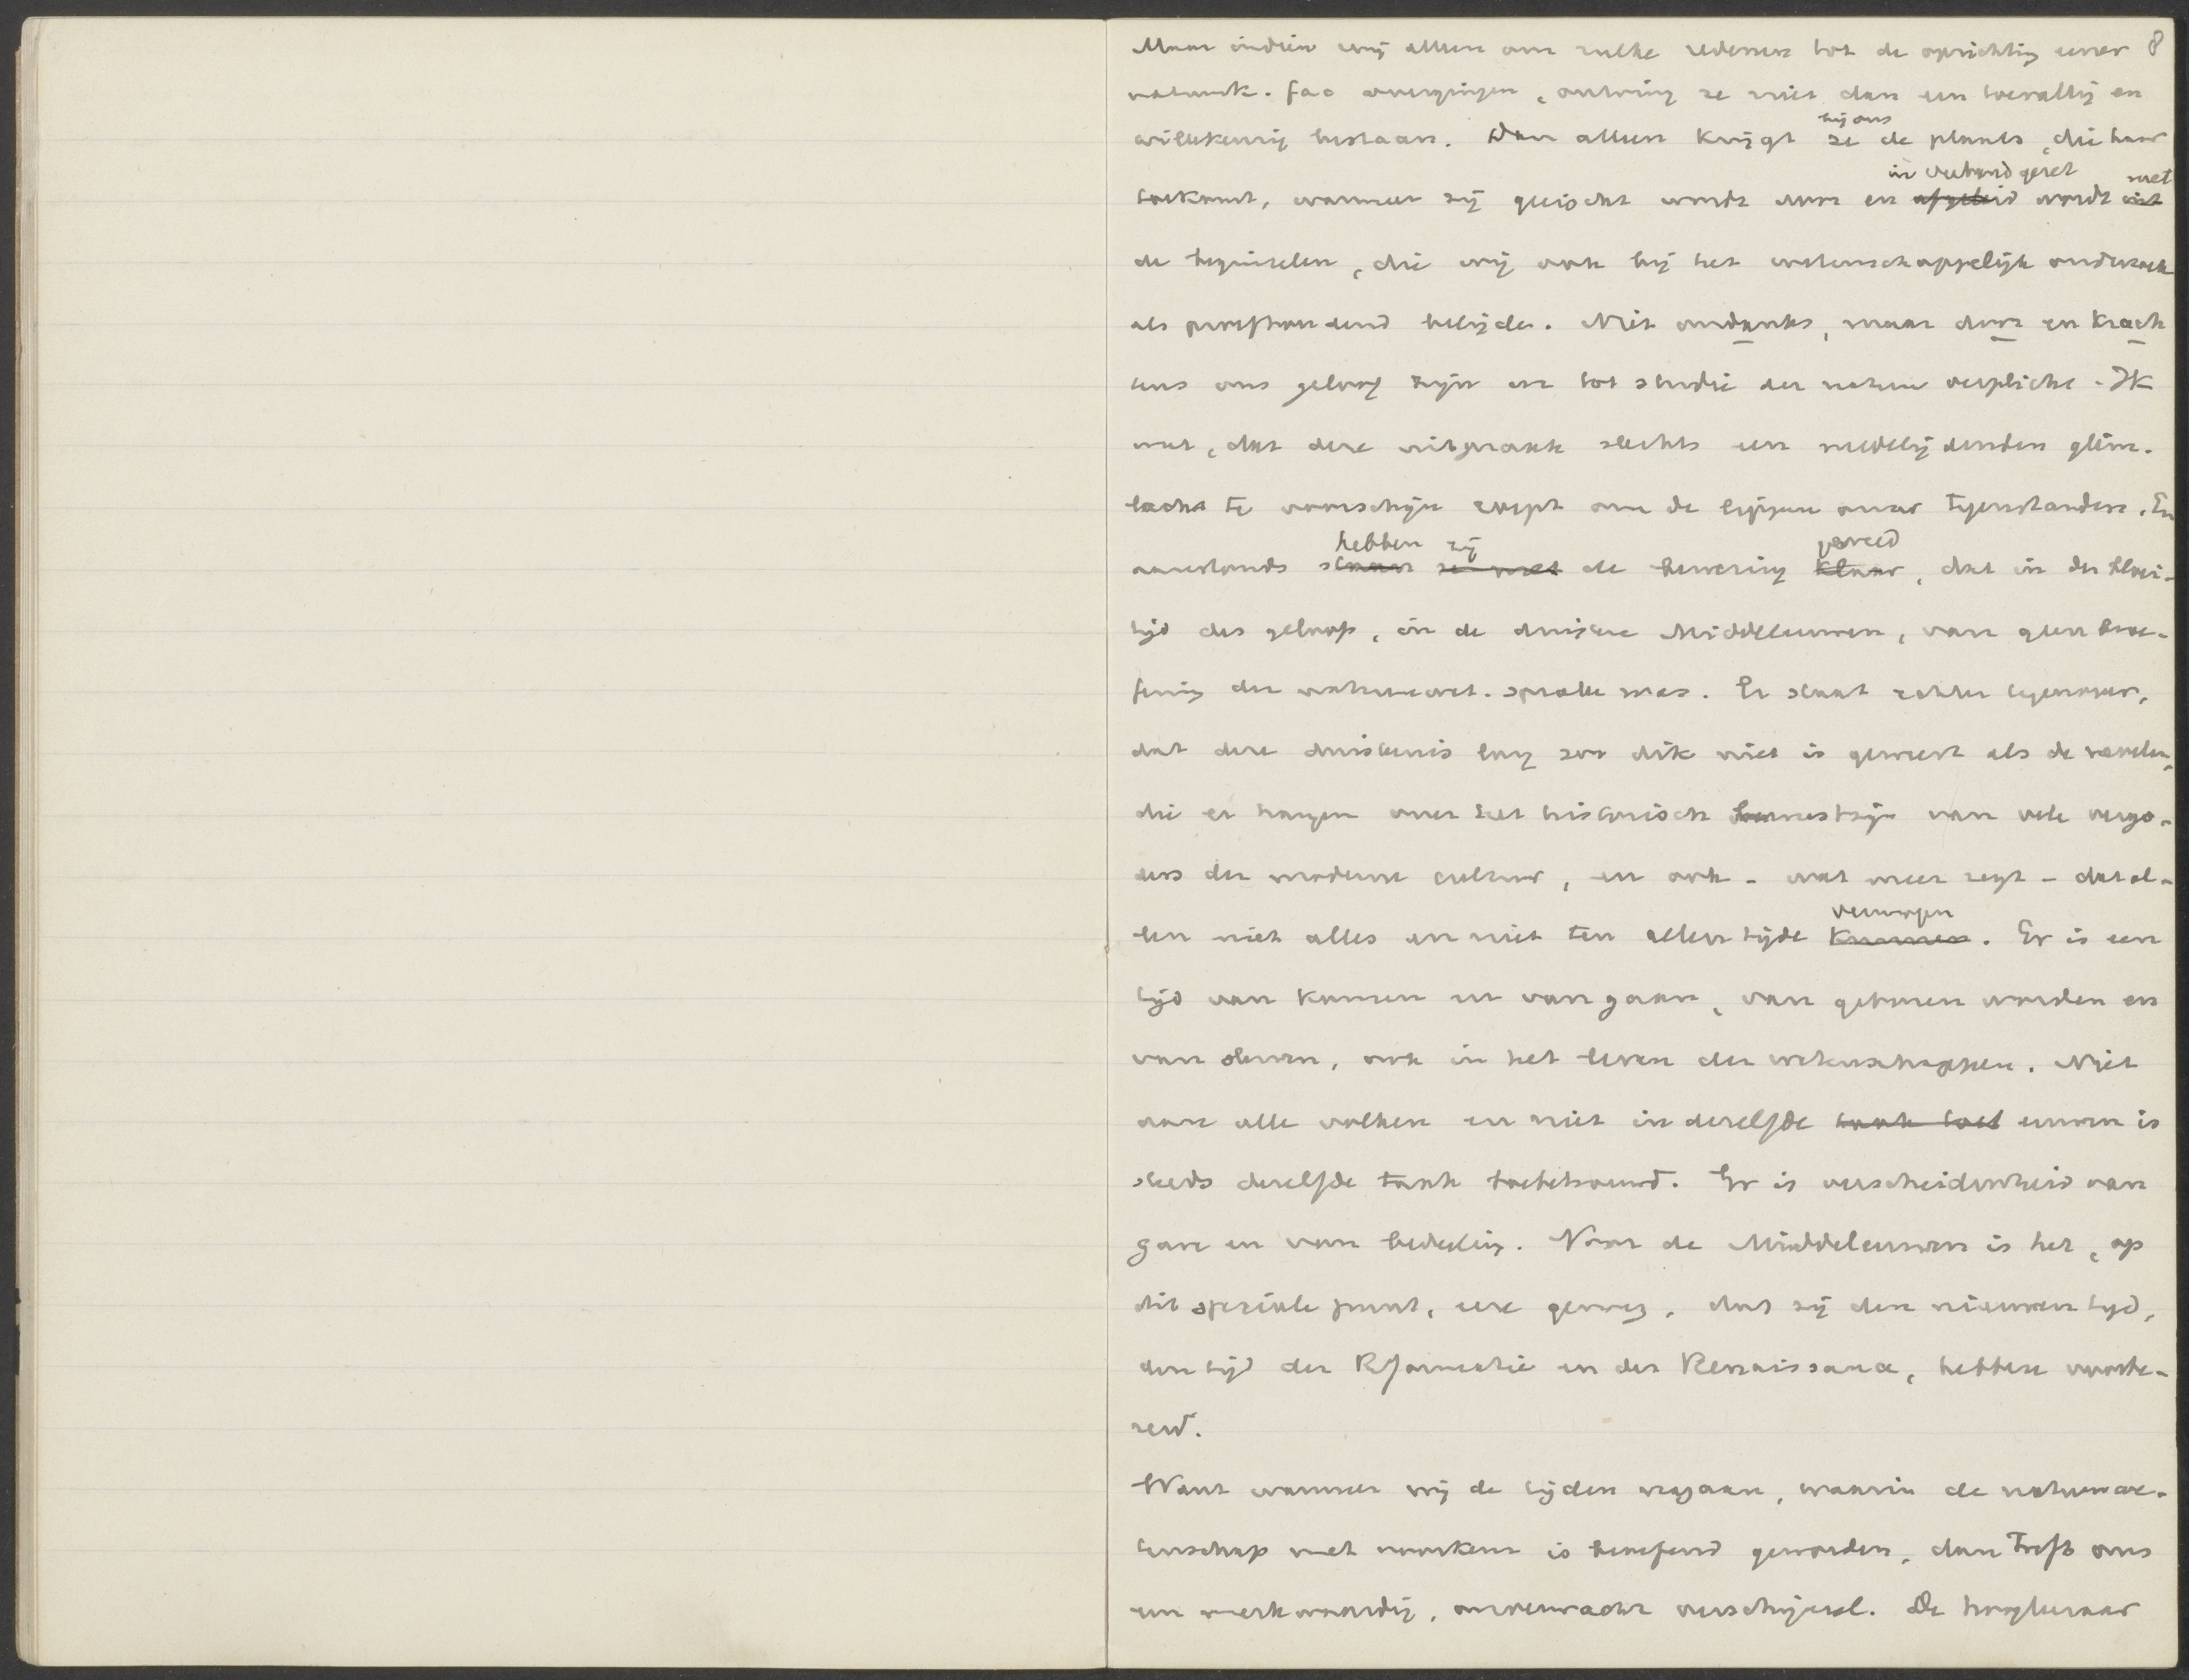 8
Maar indien wij alleen om zulke redenen tot de oprichting eener
natuurk. fac overgingen, ontving ze niet dan een toevallig en
willekeurig bestaan. Dan alleen krijgt ze bij ons de plaats, die haar
toekomt, wanneer zij geëischt wordt door en ~~afgeleid~~ in verband gezet wordt ~~uit~~ met
de beginselen, die wij ook bij het wetenschappelijk onderzoek
als proefhoudend belijden. Niet ondanks, maar door en krach
tens ons geloof zijn we tot studie der natuur verplicht. Ik
weet, dat deze uitspraak slechts een medelijdenden glim-
lach te voorschijn roept om de lippen onzer tegenstanders. En
aanstonds ~~staan~~ hebben ~~ze met~~ zij de bewering ~~klaar~~ gereed, dat in den bloei-
tijd des geloofs, in de duistere Middeleeuwen, van geen beoe-
fening der natuurwet. sprake was. Er staat echter tegenover,
dat deze duisternis lang zoo dik niet is geweest als de nevelen,
die er hangen over het historisch bewustzijn van vele vergo-
ders der moderne cultuur, en ook - wat meer zegt - dat al-
len niet alles en niet ten allen tijde ~~kunnen~~ vermogen. Er is een
tijd van komen en van gaan, van geboren worden en
van sterven, ook in het leven der wetenschappen. Niet
aan alle volken en niet in dezelfde ~~taak toe~~ eeuwen is
steeds dezelfde taak toebetrouwd. Er is verscheidenheid van
gave en van bedeeling. Voor de Middeleeuwen is het, op
dit speciale punt, eere genoeg, dat zij den nieuwen tijd,
den tijd der Reformatie en der Renaissance, hebben voorbe-
reid.
Want wanneer wij de tijden nagaan, waarin de natuurwe-
tenschap met voorkeur is beoefend geworden, dan treft ons
een merkwaardig, onverwacht verschijnsel. De hoogleeraar